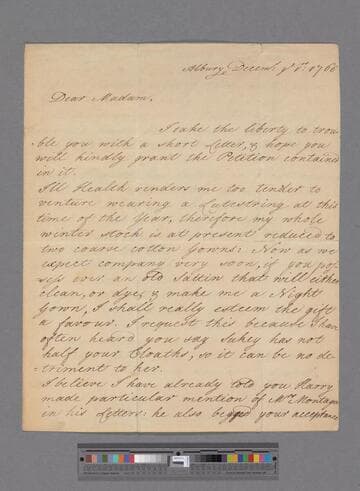 Albury Decemr ye 1st 1766
Dear Madam,
I take the liberty to trou-
ble you with a short Letter, & hope you
will kindly grant the Petition contained
in it.
Ill Health renders me too tender to
venture wearing a Lutestring at this
time of the Year, therefore my whole
winter stock is at present reduced to
two coarse cotton Gowns: Now as we
expect company very soon, if you pos-
sess ever an old Sattin that will either
clean, or dye, & make me a Night
Gown, I shall really esteem the gift
a favour. I request this because I have
often heard you say Sukey has not
half your Cloaths, so it can be no de-
=triment to her.
I believe I have already told you Harry
made particular mention of Mrs Montagu
in his Letters: he also begged your acceptance